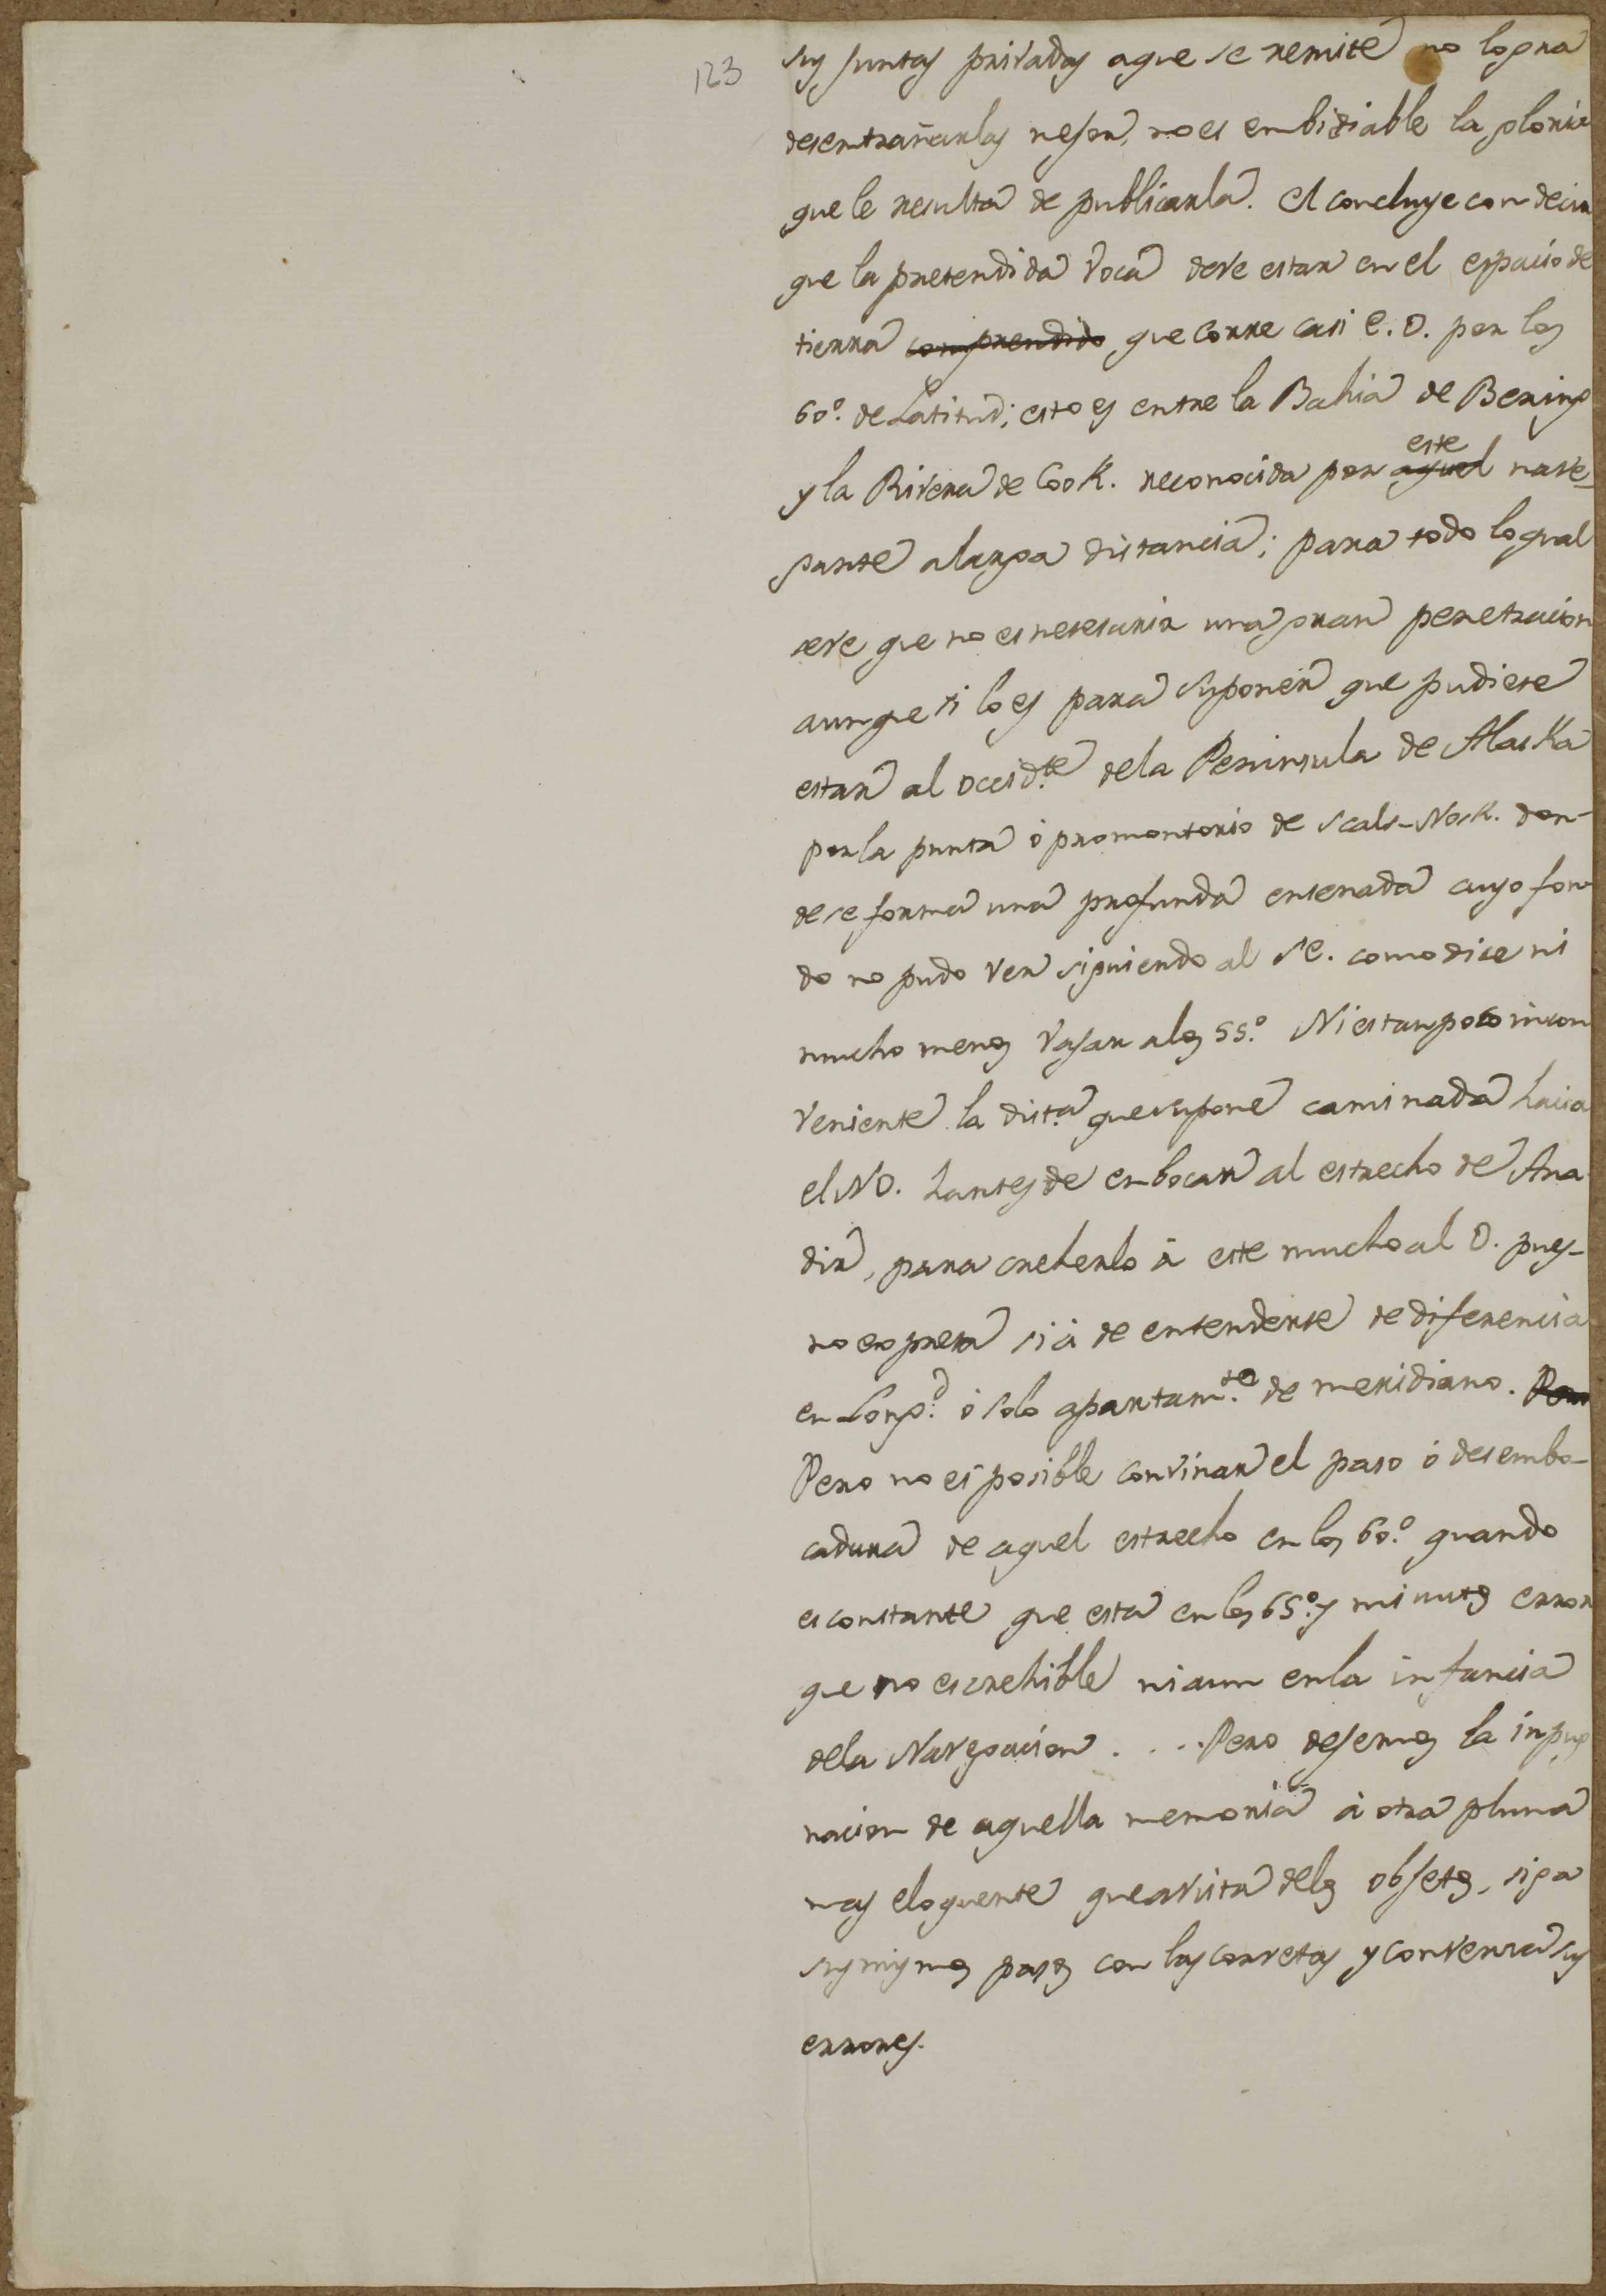 123
sus juntas privadas aque se remite no logra
desentrañarlas mejor, no es embidiable la gloria
que le resulta de publicarla. El concluye con decir
que la pretendida voca deve estar en el espacio de
tierra comprendido que corre casi E. O. por los
60º. de Latitud; esto es entre la Bahia de Bering
este
y la Rivera de Cook. reconocida por aquel nave-
gante alarga distancia; para todo lo qual
se ve que no es nesesaria una gran penetracion
aunque si lo es para suponer que pudiese
estar al occid.te dela Peninsula de Alaska
por la punta ó promontorio de Scals-Nock. don-
de se forma una profunda ensenada cuyo fon
do no pudo ver siguiendo al SE. como dice ni
mucho menos vajar alos 55.º Ni es tampoco incon
veniente la dist.a que supone caminada hacia
el NO. hantes de enbocar al estrecho de Ana
dir, para creherlo á este mucho al O. pues-
no expresa si á de entenderse de diferencia
en Long.d ó solo apartam.te de meridiano. Pero
Pero no es posible convinar el paso ó desembo-
cadura de aquel estrecho en los 60.º quando
es constante que esta en los 65.º y minutos error
que no es crehible ni aun enla infancia
dela Navegacion . . . . Pero dejemos la inpug
nacion de aquella memoria á otra pluma
mas eloquente que avista delos objetos, siga
sus mismos pasos con las corvetas y convenza sus
errores.